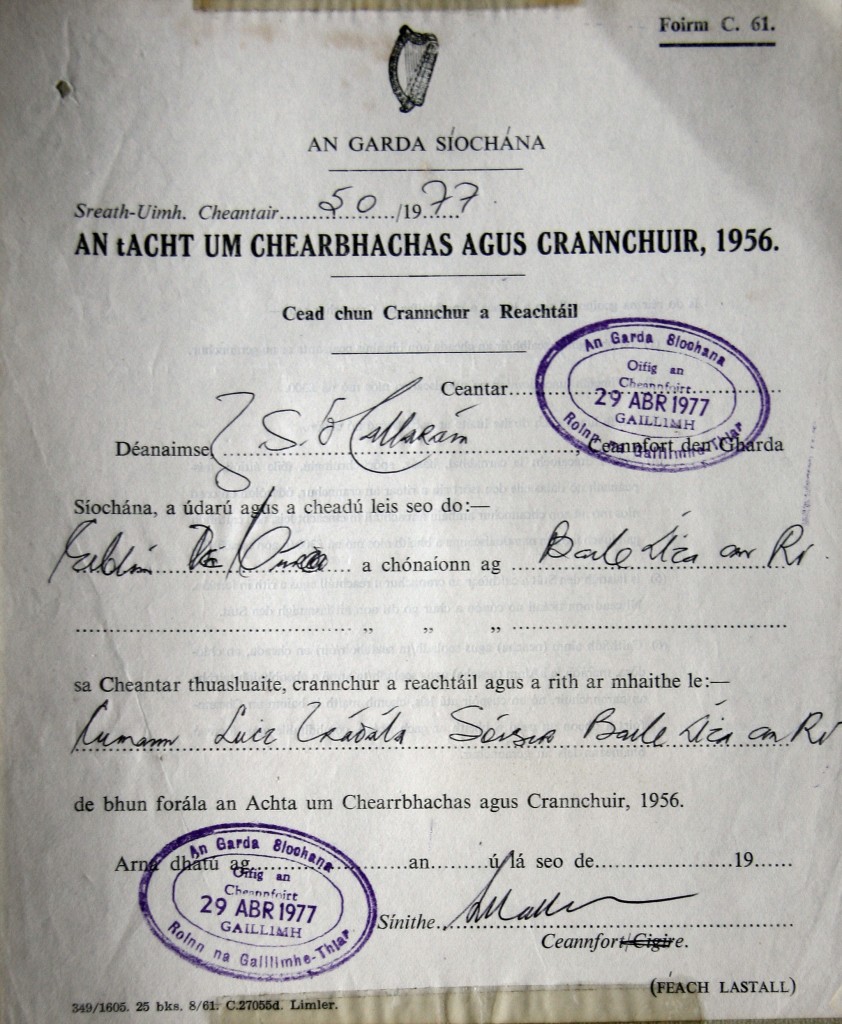 Foirm C. 61.
AN GARDA SÍOCHÁNA
Sreath-Uimh. Cheantair....50..../19.77.
AN tACHT UM CHEARBHACHAS AGUS CRANNCHUIR, 1956.
Cead chun Crannchur a Reachtáil
An Garda Síochana
Oifig an
Cheannfoirt
29 ABR 1977
GAILLIMH
Roinn na Gaillimhe-Thiar
Ceantar
Déanaimse, S. Ó Hallaráin, Ceannfort den Gharda
Síochána, a údarú agus a cheadú leis seo do:—
De a chónaíonn ag Baile Áta an Rí.
„ „ „
sa Cheantar thuasluaite, crannchur a reachtáil agus a rith ar mhaithe le:—
Cumann Luit Baile Áta an Rí
de bhun forála an Achta um Chearrbhachas agus Crannchuir, 1956.
Arna dhátú ag an ú lá seo de 19
An Garda Síochana
Oifig an
Cheannfoirt
29 ABR 1977
GAILLIMH
Roinn na Gaillimhe-Thiar
Sínithe.
Ceannfort/Cigire.
(FÉACH LASTALL)
349/1605. 25 bks. 8/61. C.27055d. Limler.